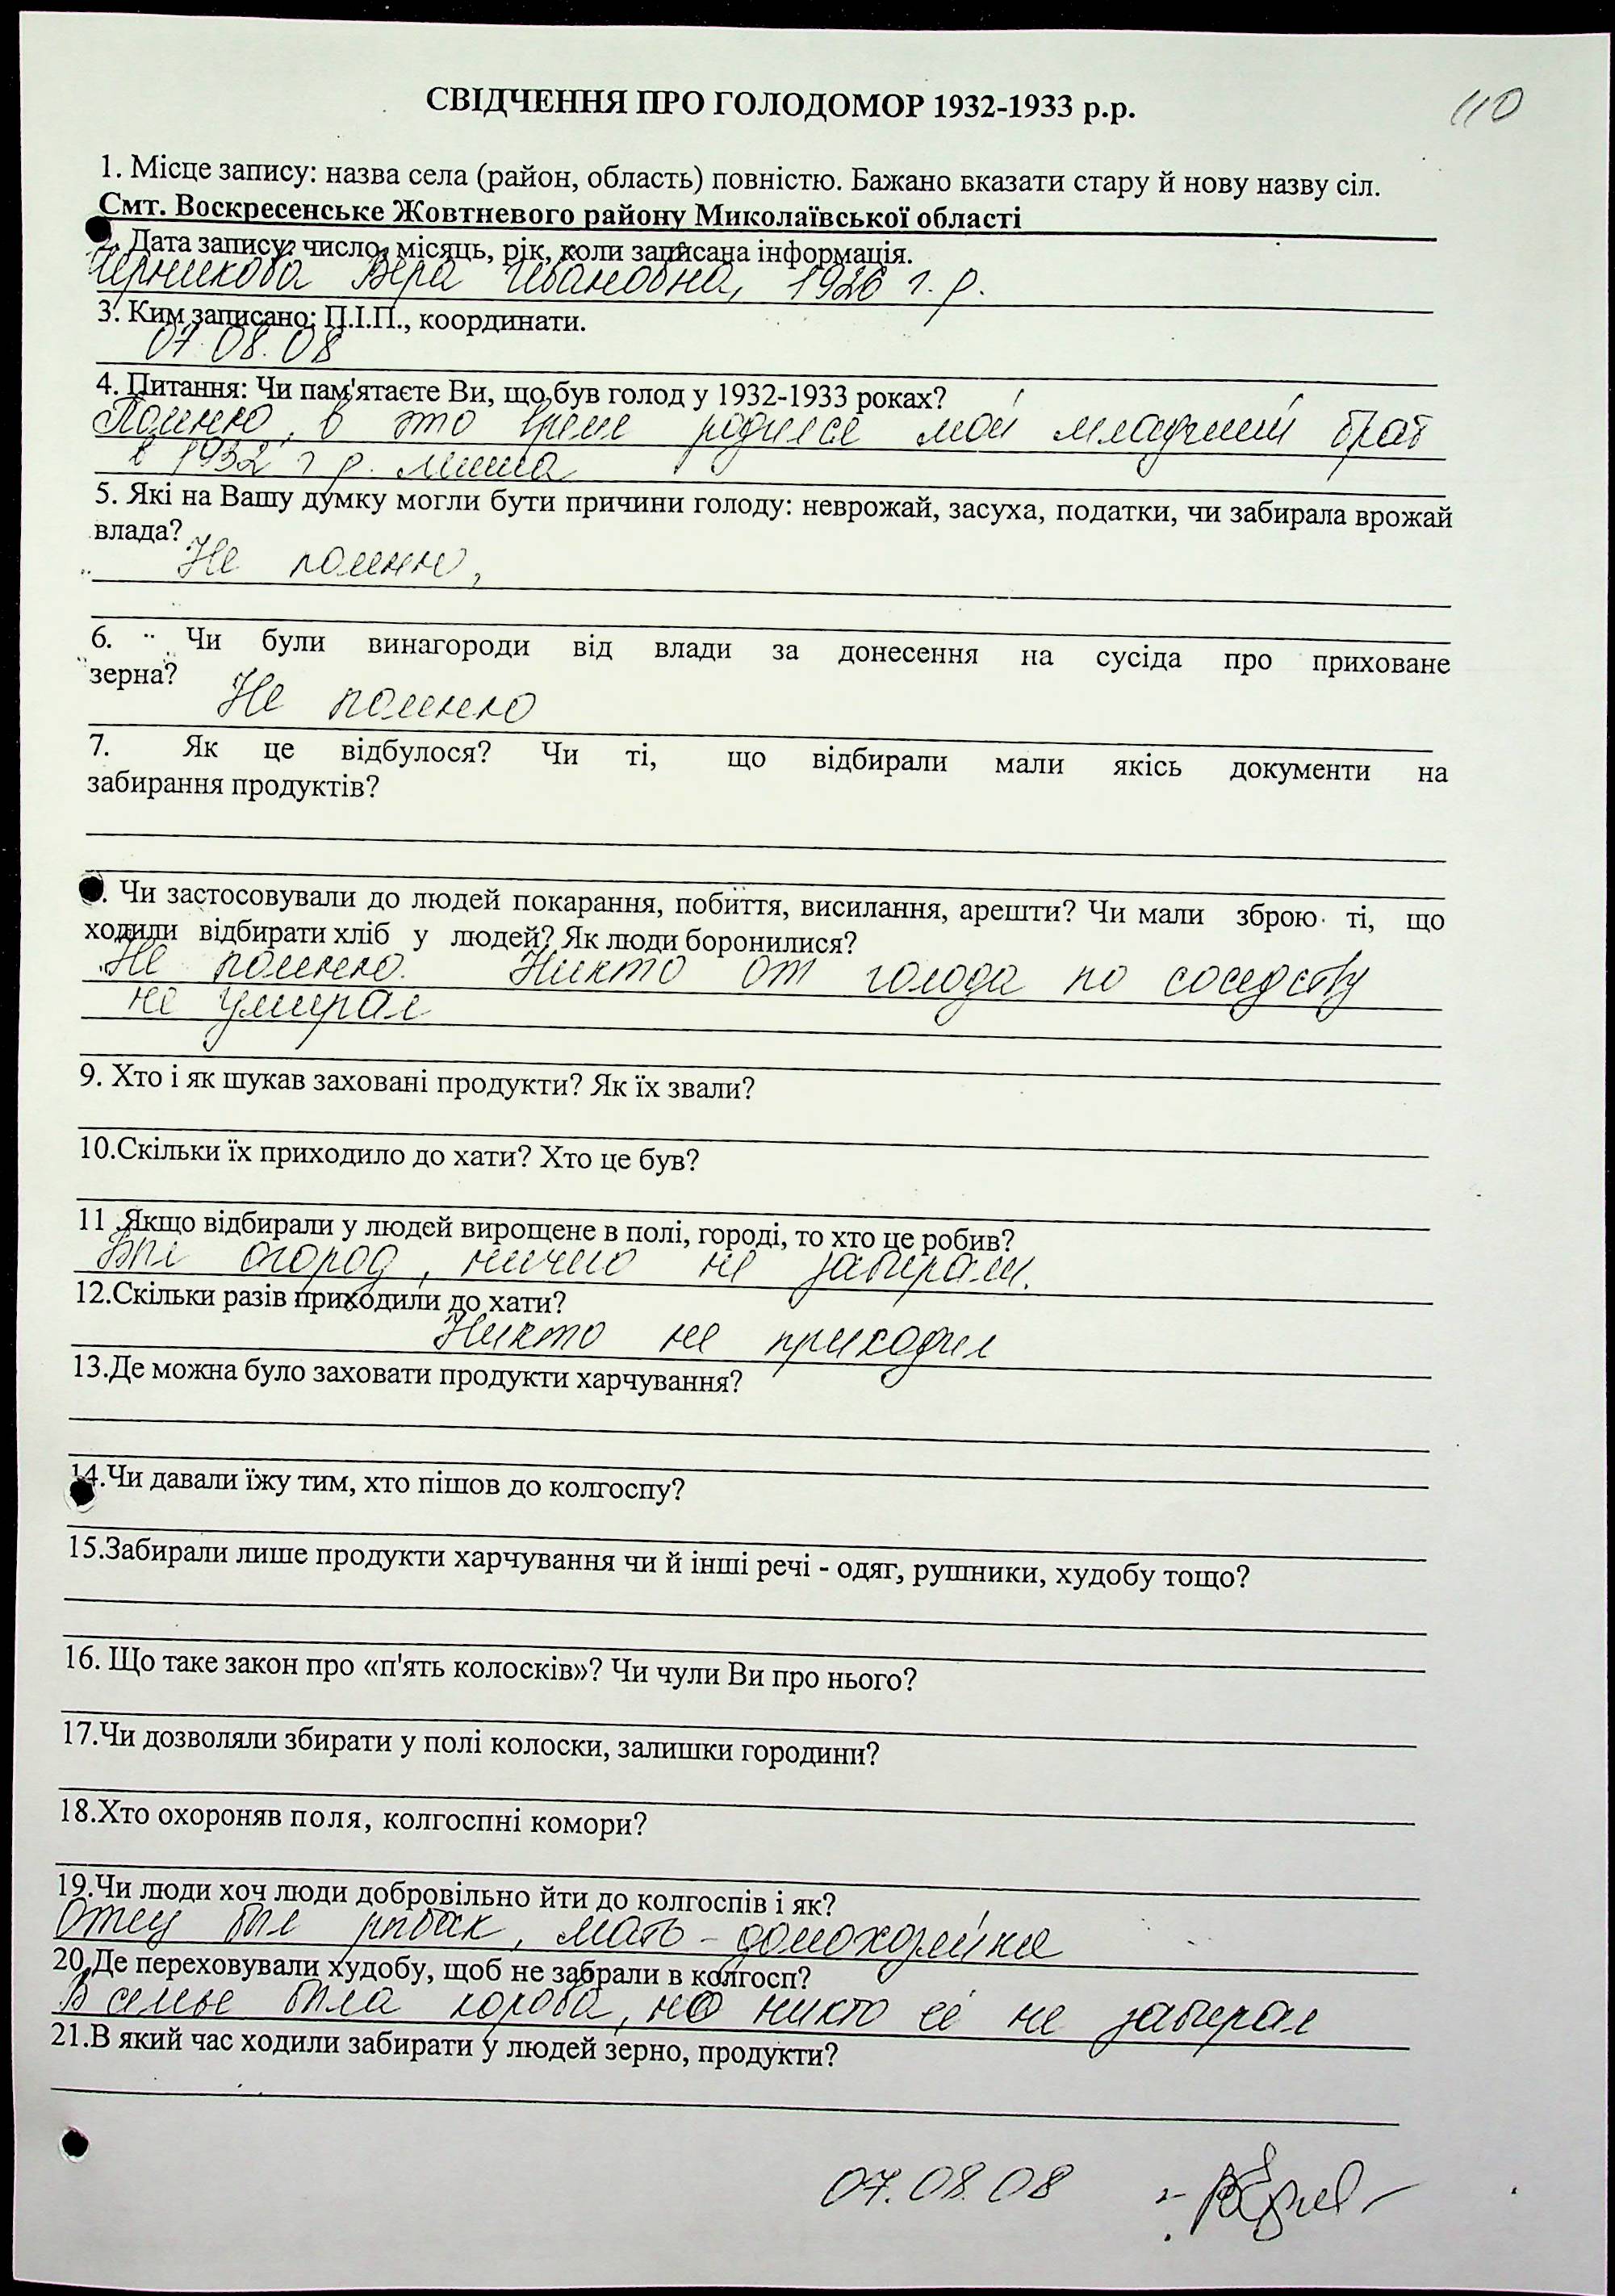 СВІДЧЕННЯ ПРО ГОЛОДОМОР 1932-1933 р.р.
110
1. Місце запису: назва села (район, область) повністю. Бажано вказати стару й нову назву сіл.
Смт. Воскресенське Жовтневого району Миколаївської області
2. Дата запису: число, місяць, рік, коли записана інформація.
Черникова Вера Ивановна, 1926 г. р.
3. Ким записано: П.І.П., координати.
07.08.08
4. Питання: Чи пам'ятаєте Ви, що був голод у 1932-1933 роках?
Помню, в это время родился мой младший брат
в 1932 г р. Миша
5. Які на Вашу думку могли бути причини голоду: неврожай, засуха, податки, чи забирала врожай
влада?
Не помню,
6. Чи були винагороди від влади за донесення на сусіда про приховане
зерна?
Не помню
7. Як це відбулося? Чи ті, що відбирали мали якісь документи на
забирання продуктів?
. Чи застосовували до людей покарання, побиття, висилання, арешти? Чи мали зброю ті, що
ходили відбирати хліб у людей? Як люди боронилися?
Не помню. Никто от голода по соседству
не умирал
9. Хто і як шукав заховані продукти? Як їх звали?
10.Скільки їх приходило до хати? Хто це був?
11 .Якщо відбирали у людей вирощене в полі, городі, то хто це робив?
Был огород, ничего не забирали.
12.Скільки разів приходили до хати?
Никто не приходил
13.Де можна було заховати продукти харчування?
14.Чи давали їжу тим, хто пішов до колгоспу?
15.Забирали лише продукти харчування чи й інші речі - одяг, рушники, худобу тощо?
16. Що таке закон про «п'ять колосків»? Чи чули Ви про нього?
17.Чи дозволяли збирати у полі колоски, залишки городини?
18.Хто охороняв поля, колгоспні комори?
19.Чи люди хоч люди добровільно йти до колгоспів і як?
Отец был рыбак, мать - домохозяйка
20.Де переховували худобу, щоб не забрали в колгосп?
В семье была корова, но никто её не забирал
21.В який час ходили забирати у людей зерно, продукти?
07.08.08